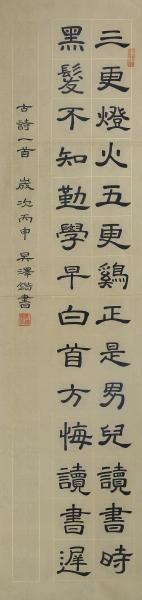 三更燈火五更鷄正是男兒讀書時
黑髮不知勤學早白首方悔讀書遲
古詩一首 歲次丙申 吳澤鍇書